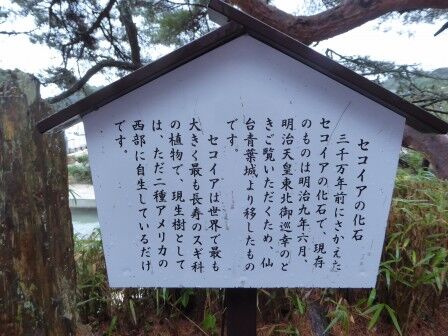 セコイアの化石
三千万年前にさかえた
セコイアの化石で、現存
のものは明治九年六月、
明治天皇東北御巡幸のと
きご覧いただくため、仙
台青葉城より移したもの
です。
セコイアは世界で最も
大きく最も長寿のスギ科
の植物で、現生樹として
は、ただ二種アメリカの
西部に自生しているだけ
です。